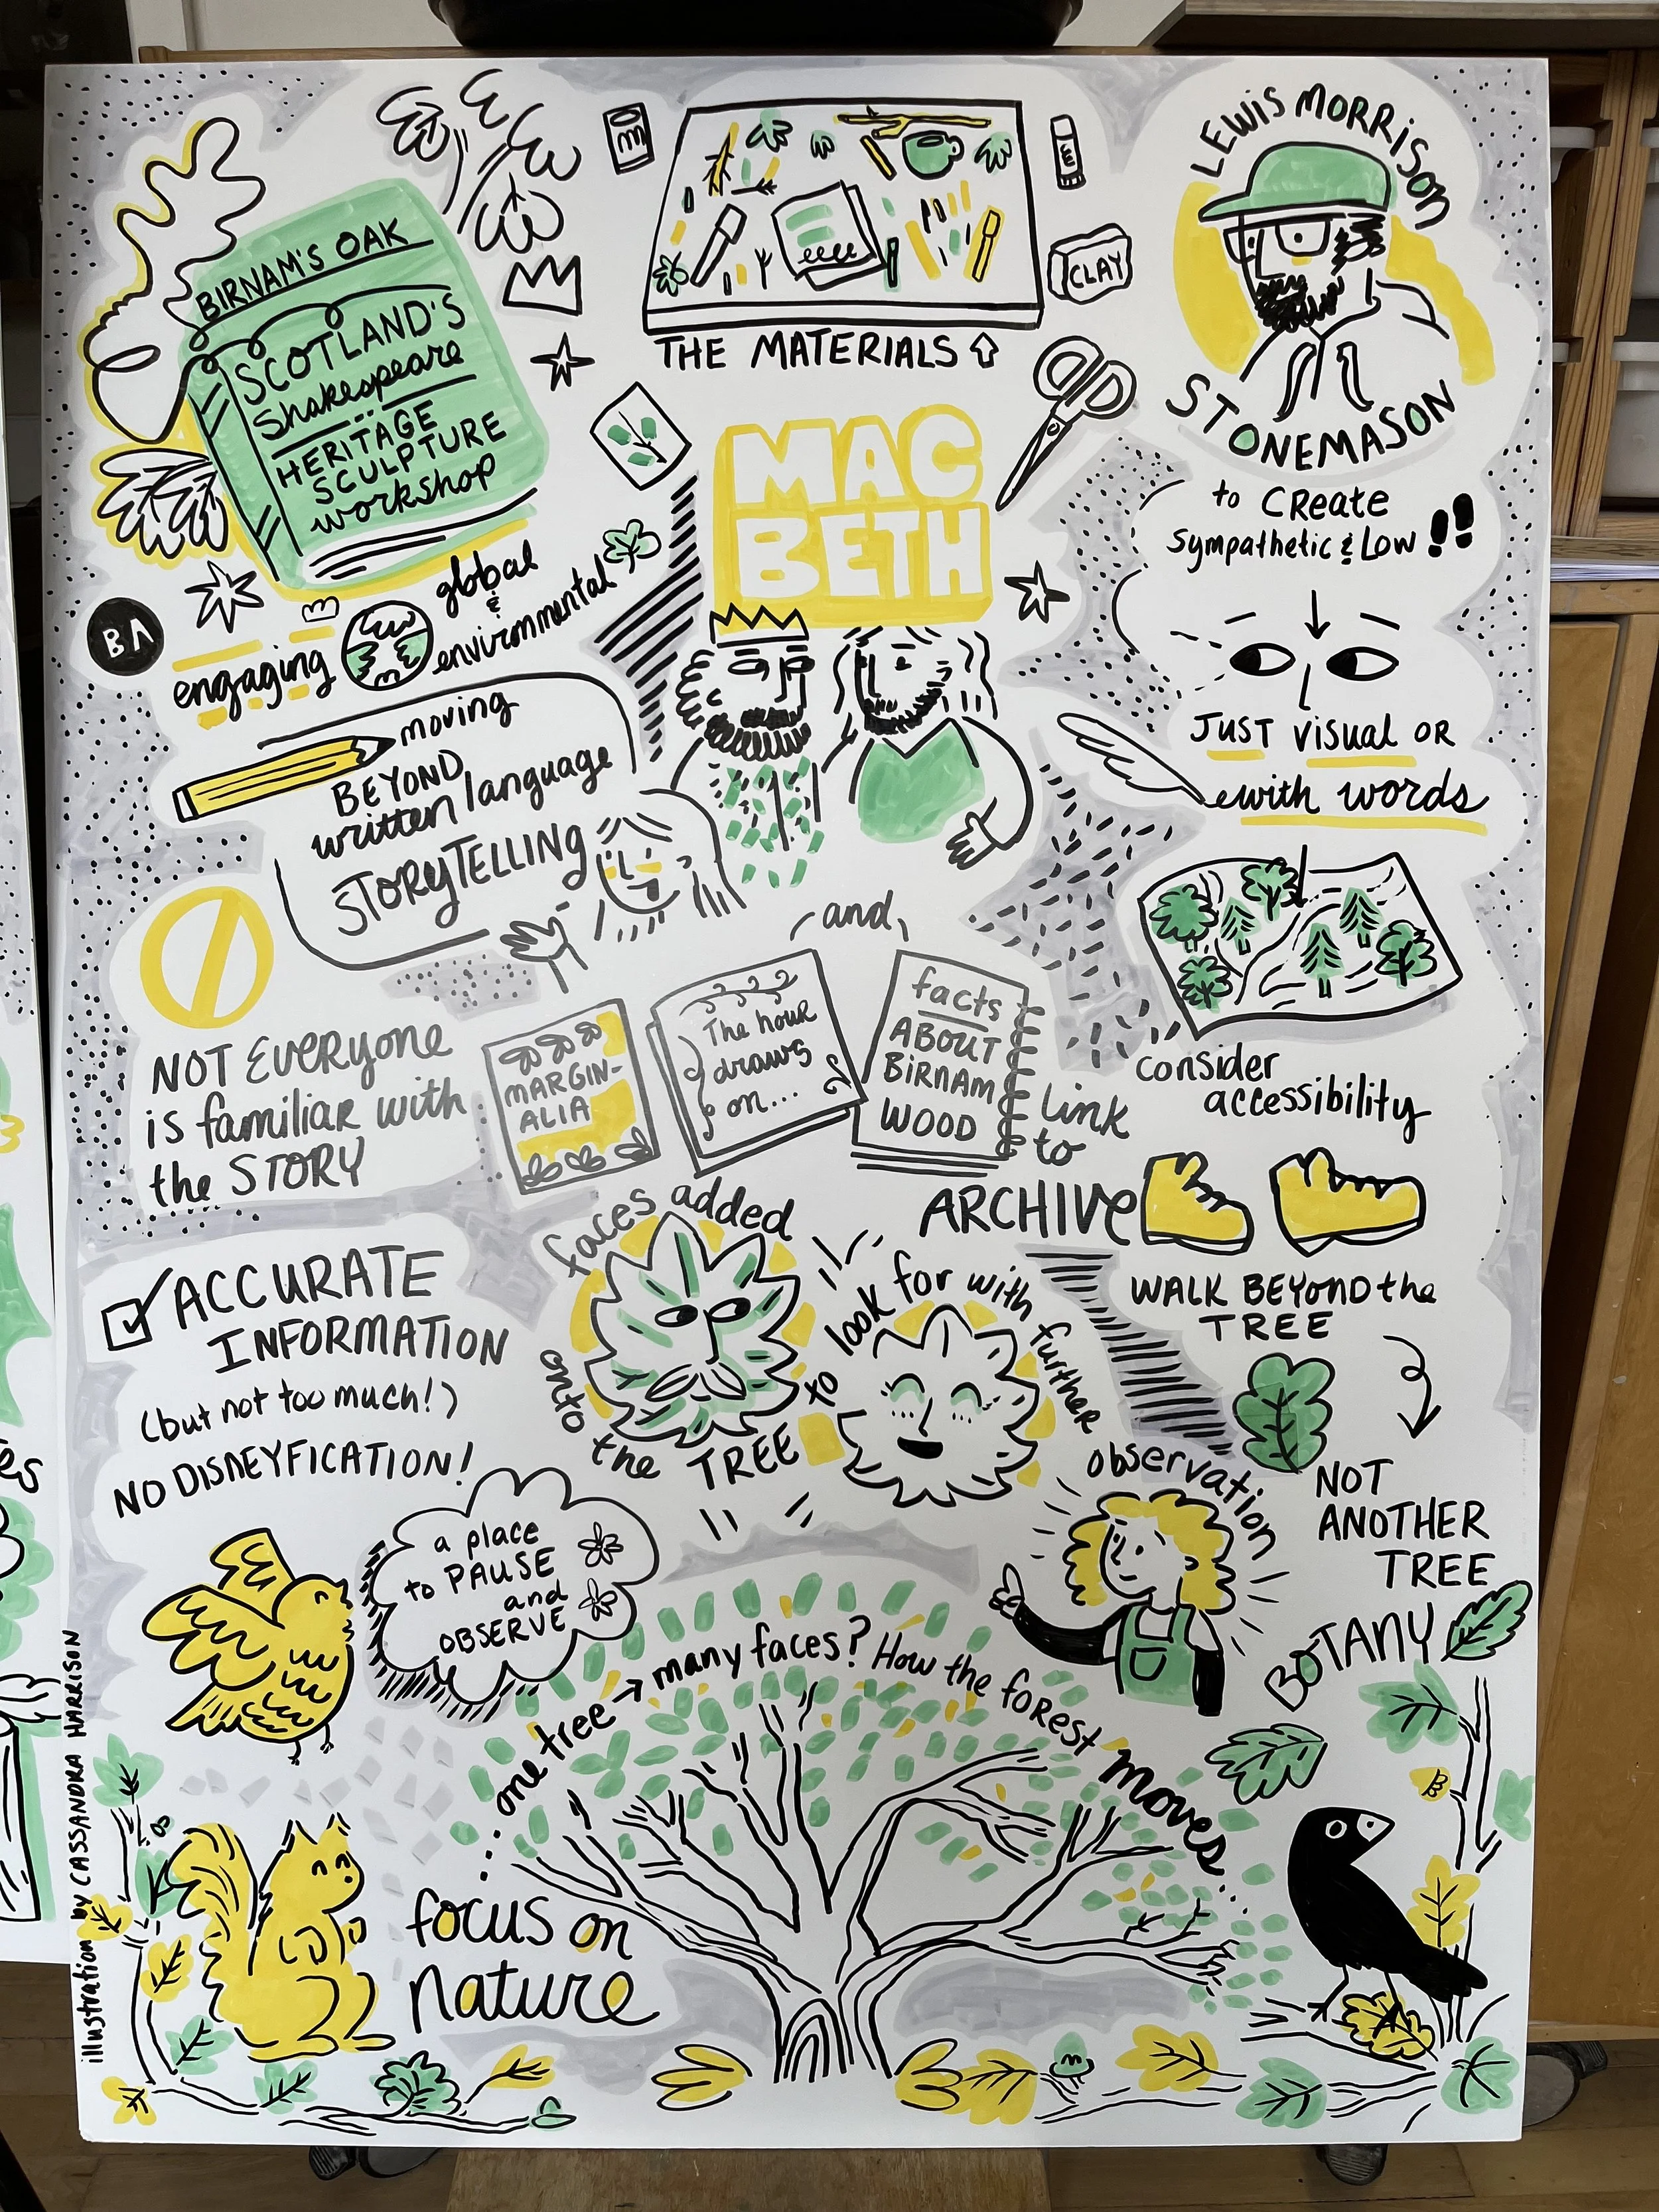 BIRNAM'S OAK
SCOTLAND'S
Shakespeare
HERITAGE
SCULPTURE
workshop
THE MATERIALS
CLAY
LEWIS MORRISON
STONEMASON
to CREATE
sympathetic & Low
JUST visual OR
with words
consider
accessibility
MAC
BETH
BA
engaging
global
&
environmental
moving
BEYOND
written language
STORYTELLING
NOT Everyone
is familiar with
the STORY
MARGIN-
ALIA
The hour
draws
on...
and
facts
ABOUT
BIRNAM
WOOD
link
to
ARCHIVE
WALK BEYOND the
TREE
NOT
ANOTHER
TREE
BOTANY
ACCURATE
INFORMATION
(but not too much!)
NO DISNEYFICATION!
faces added
onto the TREE
to look for with further observation
a place
to PAUSE
and
OBSERVE
one tree → many faces? How the forest moves...
focus on
nature
illustration by CASSANDRA HARRISON